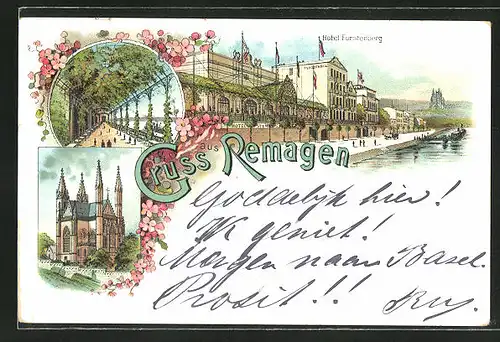 Hotel Fürstenberg
Gruss aus Remagen
Goddelijk hier!
Ik geniet!
Morgen naar Basel.
Prosit!!